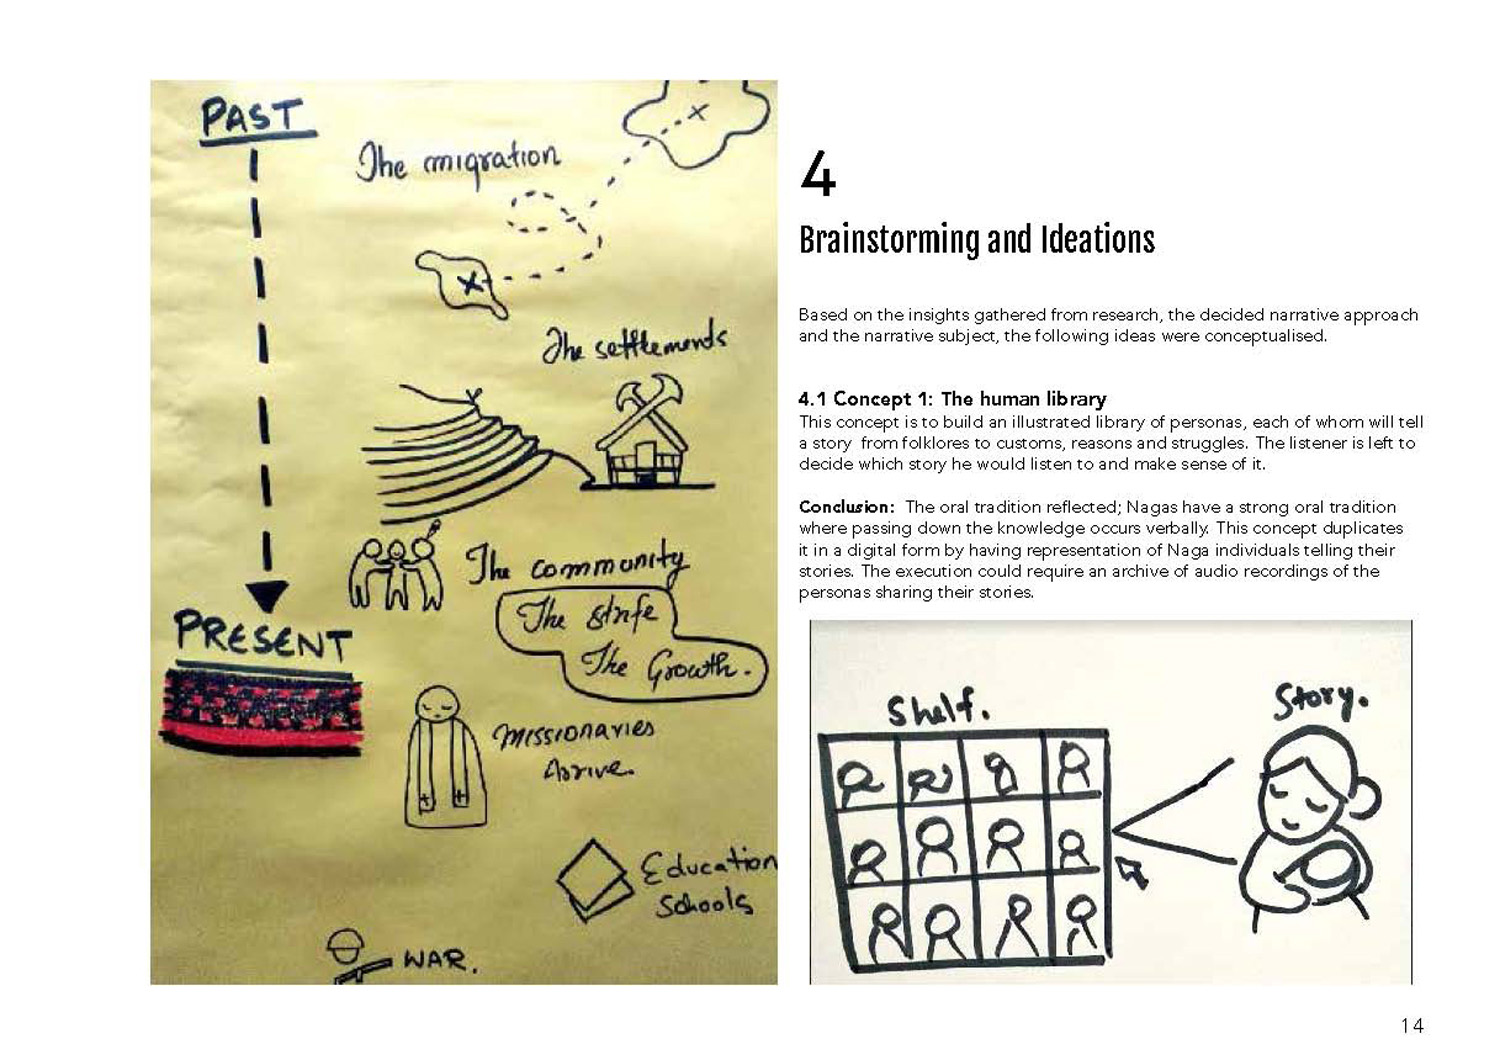 PAST
The migration
The settlements
The community
The strife
The Growth.
PRESENT
MISSIONARIES
Arrive.
Education
Schools
WAR.
4
Brainstorming and Ideations
Based on the insights gathered from research, the decided narrative approach
and the narrative subject, the following ideas were conceptualised.
4.1 Concept 1: The human library
This concept is to build an illustrated library of personas, each of whom will tell
a story from folklores to customs, reasons and struggles. The listener is left to
decide which story he would listen to and make sense of it.
Conclusion: The oral tradition reflected; Nagas have a strong oral tradition
where passing down the knowledge occurs verbally. This concept duplicates
it in a digital form by having representation of Naga individuals telling their
stories. The execution could require an archive of audio recordings of the
personas sharing their stories.
Shelf.
Story.
14